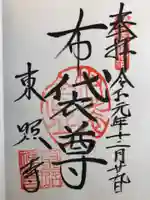 奉拝 令和元年十二月廿一日
布袋尊
東照寺